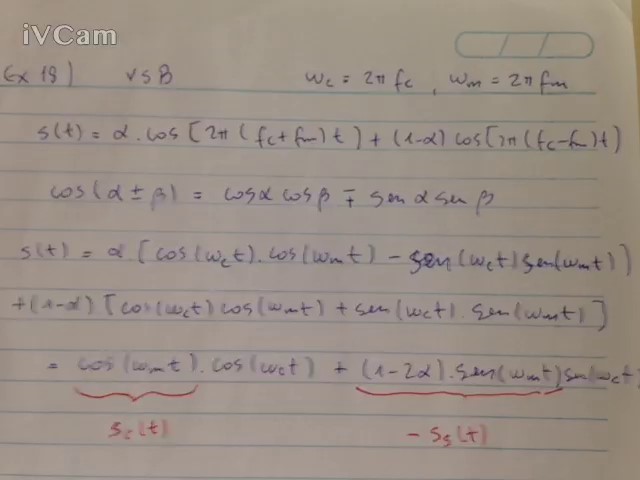 iVCam
Ex 18) VSB ωc = 2πfc , ωm = 2πfm
s(t) = α.cos[2π(fc+fm)t] + (1-α)cos[2π(fc-fm)t]
cos(α ± β) = cosα cosβ ∓ sen α sen β
s(t) = α [cos(ωct).cos(ωmt) - sen(ωct)sen(ωmt)]
+(1-α) [cos(ωct)cos(ωmt) + sen(ωct).sen(ωmt)]
= cos(ωmt).cos(ωct) + (1-2α).sen(ωmt)sen(ωct)
sc(t) - ss(t)